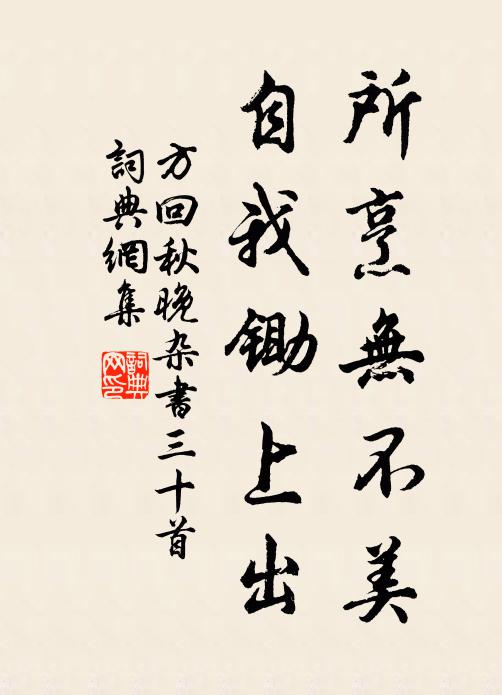 所烹無不美
自我鋤上出
方回秋晚杂書三十首
詞典網集
詞典
网印